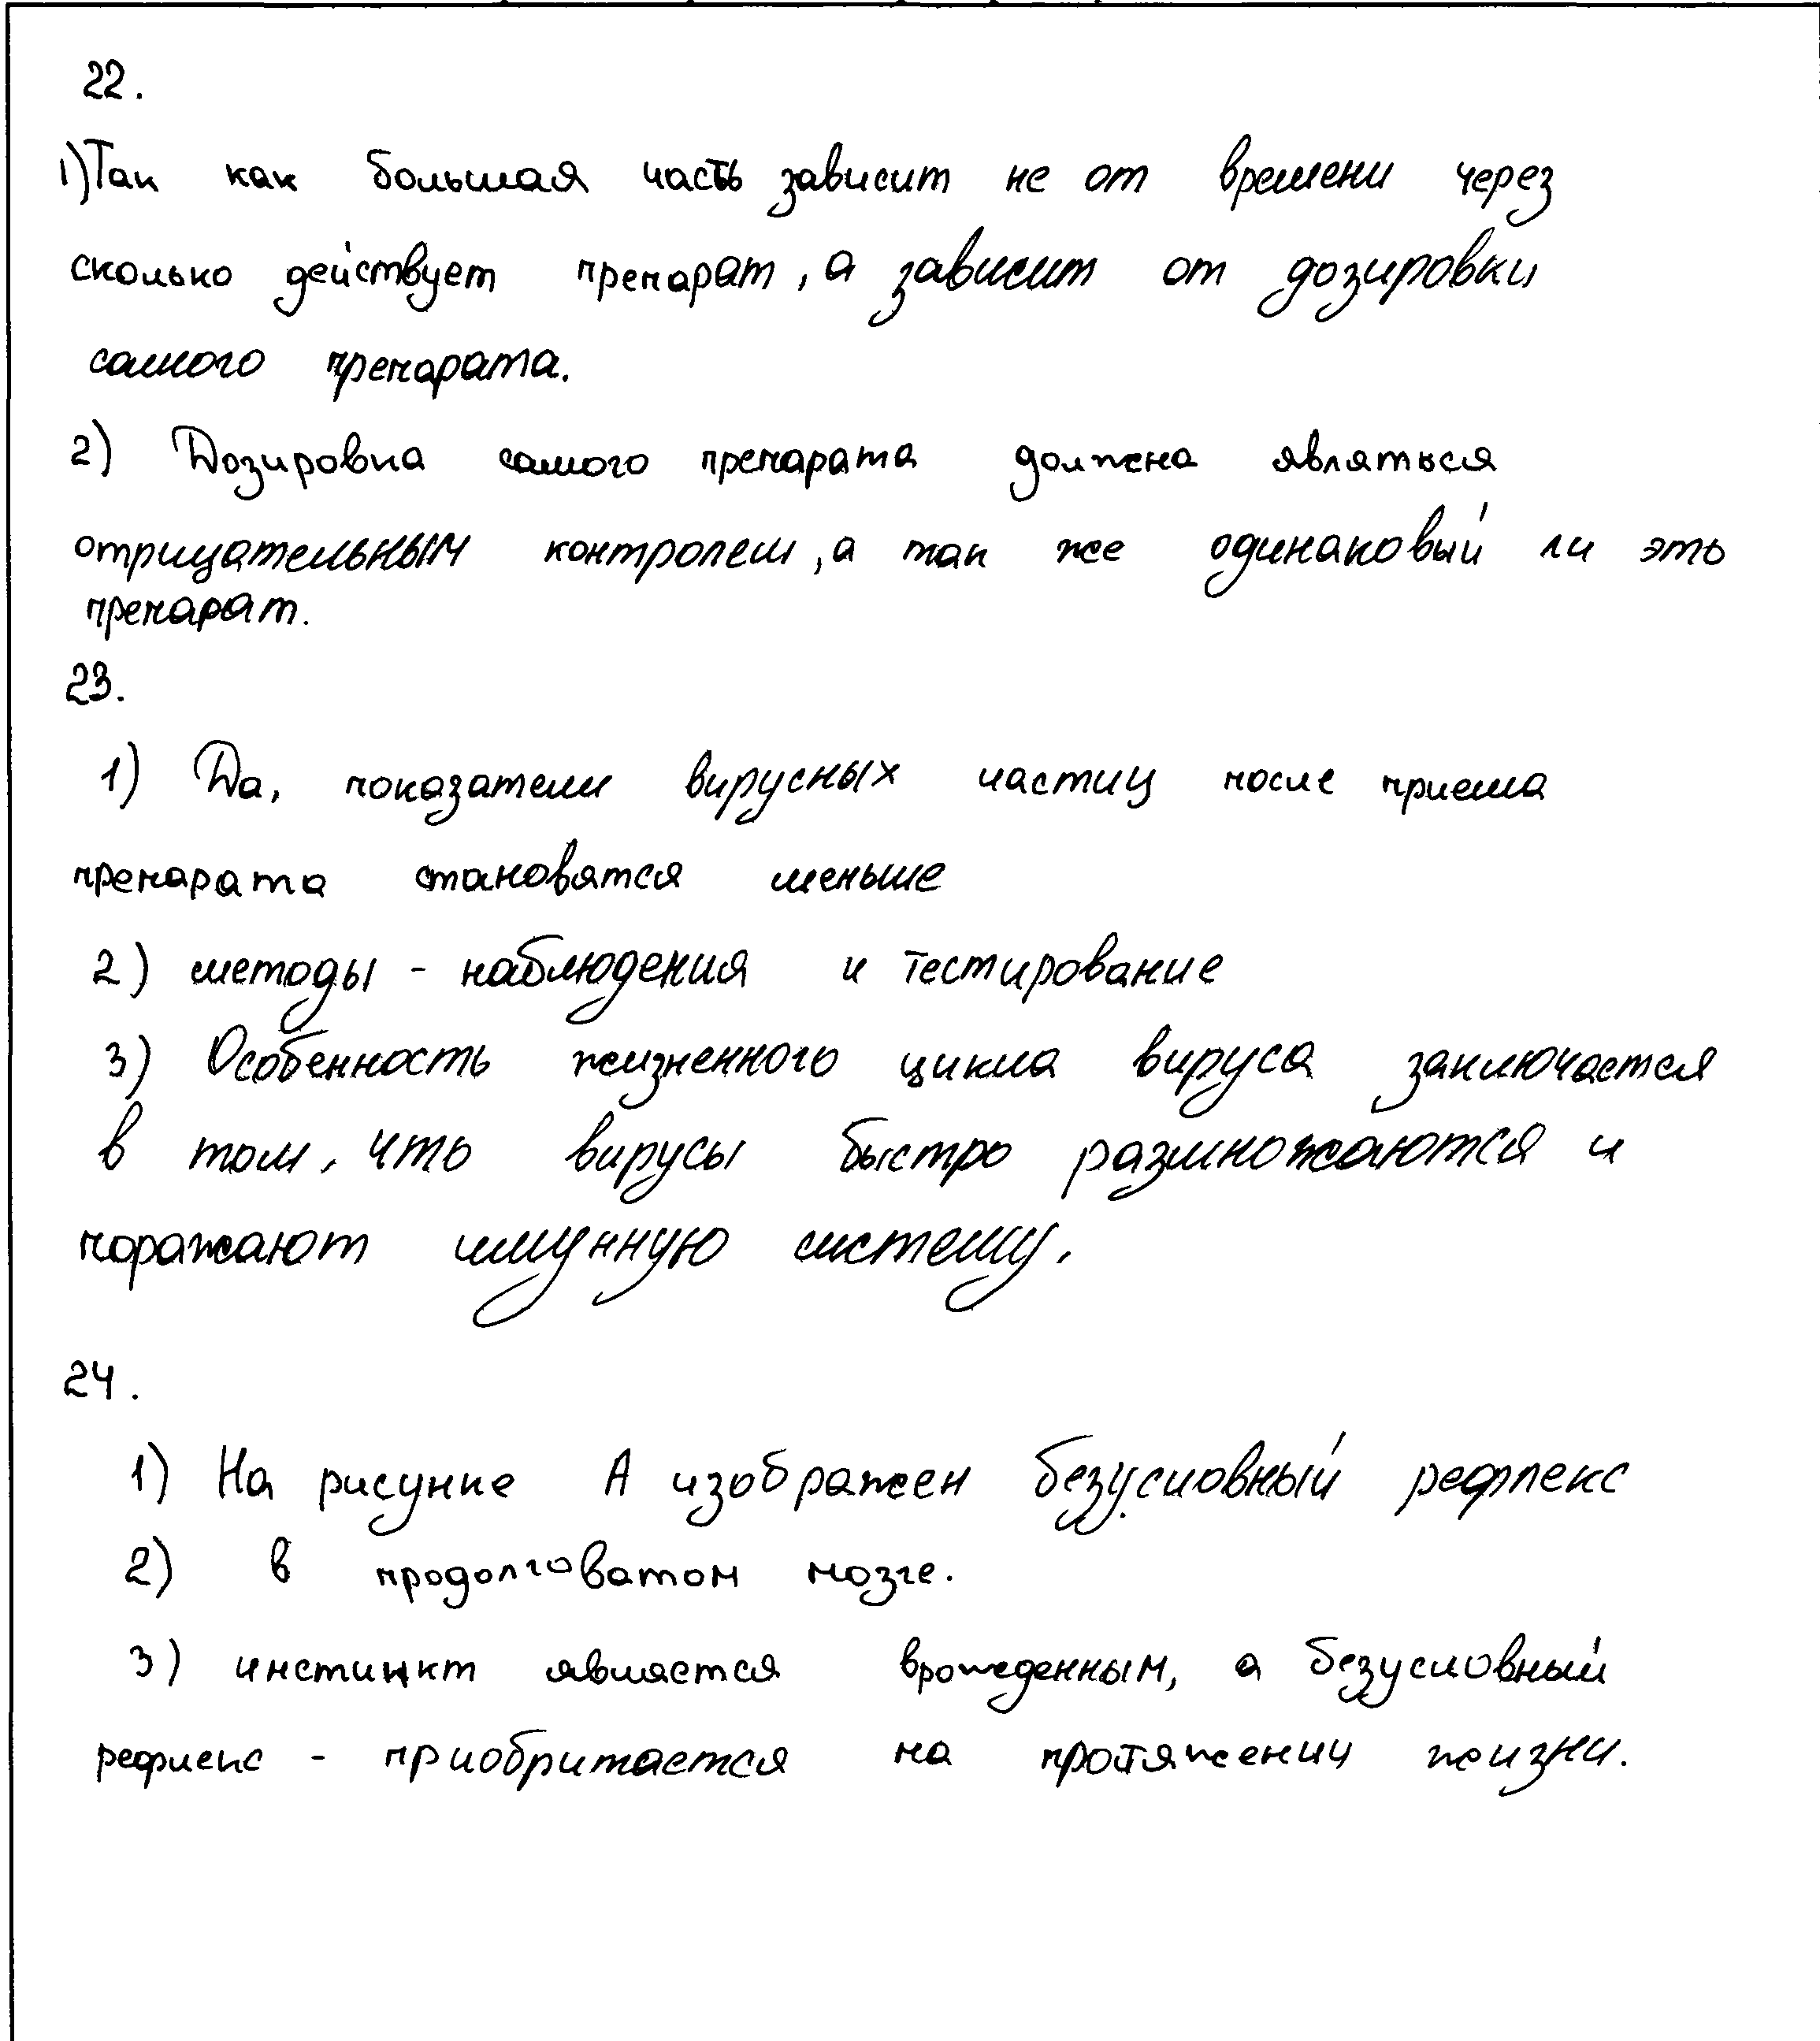 22.
1) Так как большая часть зависит не от времени через
сколько действует препарат, а зависит от дозировки
самого препарата.
2) Дозировка самого препарата должна являться
отрицательным контролем, а так же одинаковый ли это
препарат.
23.
1) Да, показатели вирусных частиц после приема
препарата становятся меньше
2) методы - наблюдения и тестирование
3) Особенность жизненного цикла вируса заключается
в том, что вирусы быстро размножаются и
поражают имунную систему.
24.
1) На рисунке А изображен безусловный рефлекс
2) в продолговатом мозге.
3) инстинкт является врожденным, а безусловный
рефлекс - приобритается на протяжении жизни.